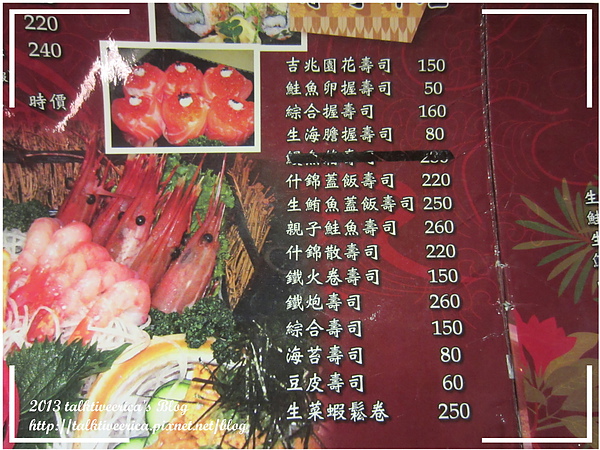 220
240
時價
吉兆園花壽司 150
鮭魚卵握壽司 50
綜合握壽司 160
生海膽握壽司 80
什錦蓋飯壽司 220
生鮪魚蓋飯壽司 250
親子鮭魚壽司 260
什錦散壽司 220
鐵火卷壽司 150
鐵炮壽司 260
綜合壽司 150
海苔壽司 80
豆皮壽司 60
生菜蝦鬆卷 250
2013 talktiveerica's Blog
http://talktiveerica.pixnet.net/blog